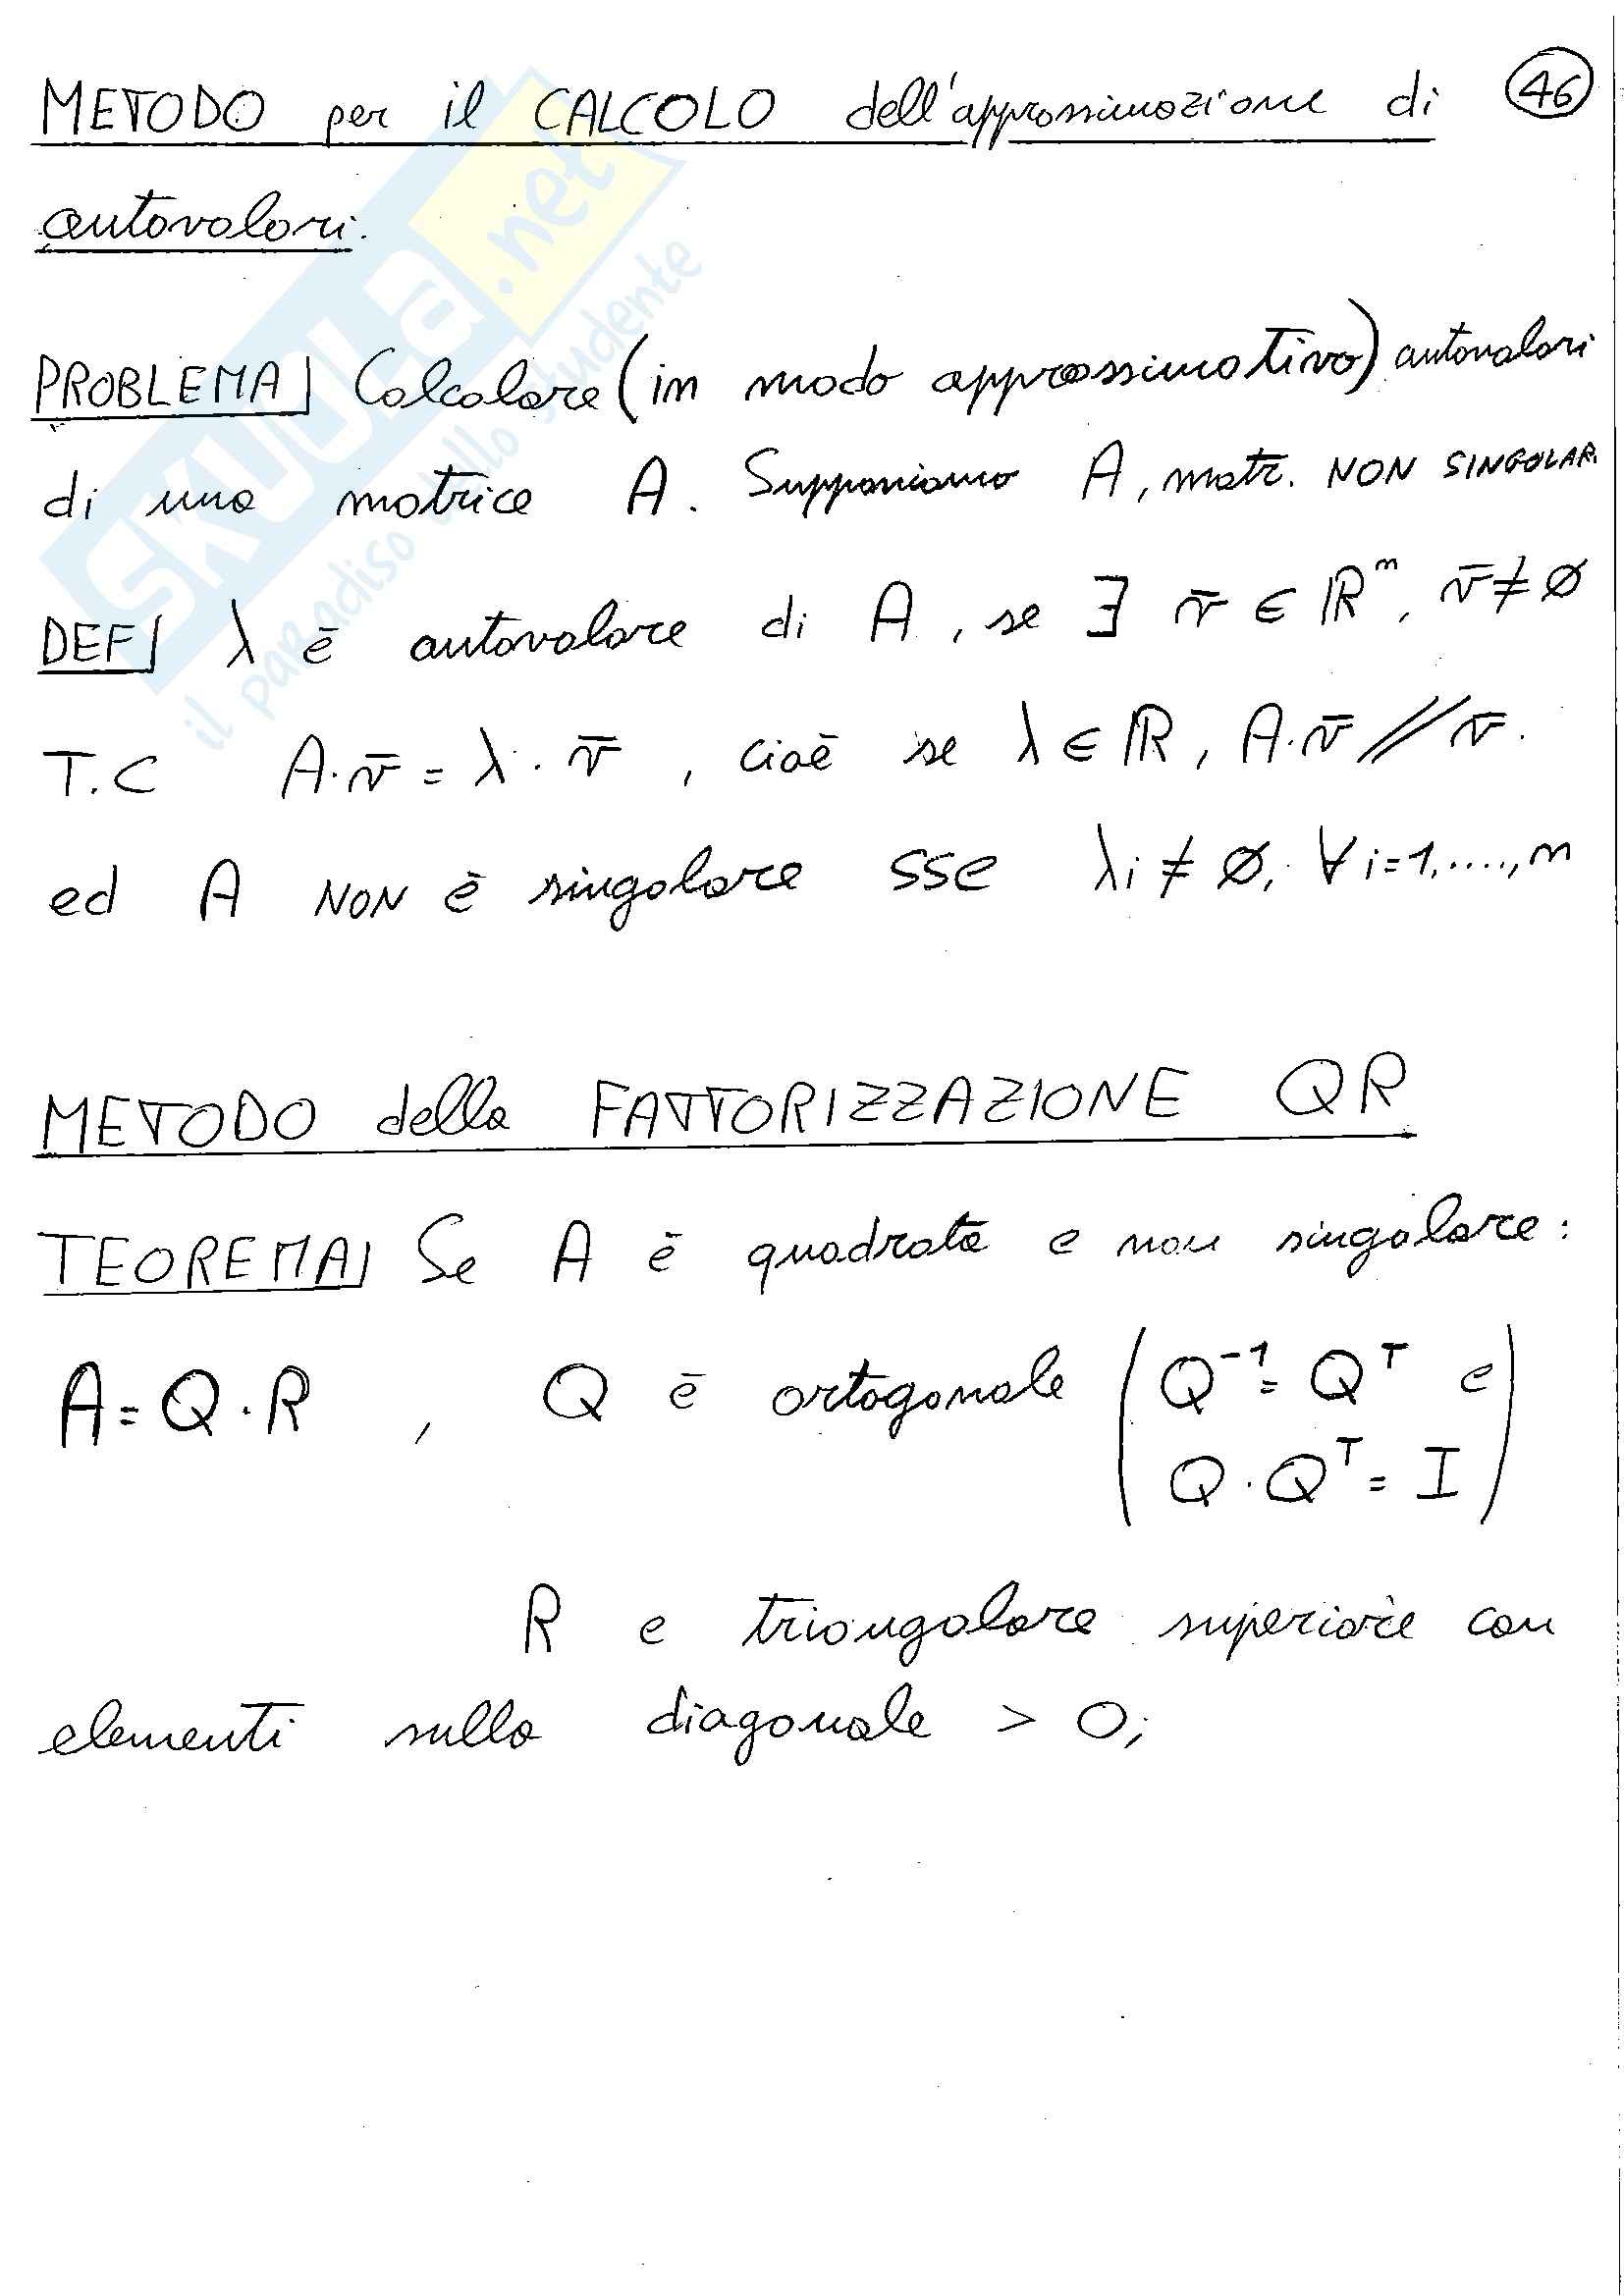 METODO per il CALCOLO dell'approssimazione di 46
autovalori.
PROBLEMA Calcolare (in modo approssimativo) autovalori
di una matrice A. Supponiamo A, matr. NON SINGOLAR.
DEF λ è autovalore di A, se ∃ v̄ ∈ ℝⁿ, v̄ ≠ ∅
T.C A·v̄ = λ·v̄, cioè se λ ∈ ℝ, A·v̄ // v̄.
ed A NON è singolare sse λi ≠ ∅, ∀ i=1,....,n
METODO della FATTORIZZAZIONE QR
TEOREMA Se A è quadrata e non singolare:
A = Q·R, Q è ortogonale (Q⁻¹ = Qᵀ e
Q·Qᵀ = I)
R e triangolare superiore con
elementi sulla diagonale > 0;
SKUOLA.net
il paradiso dello studente